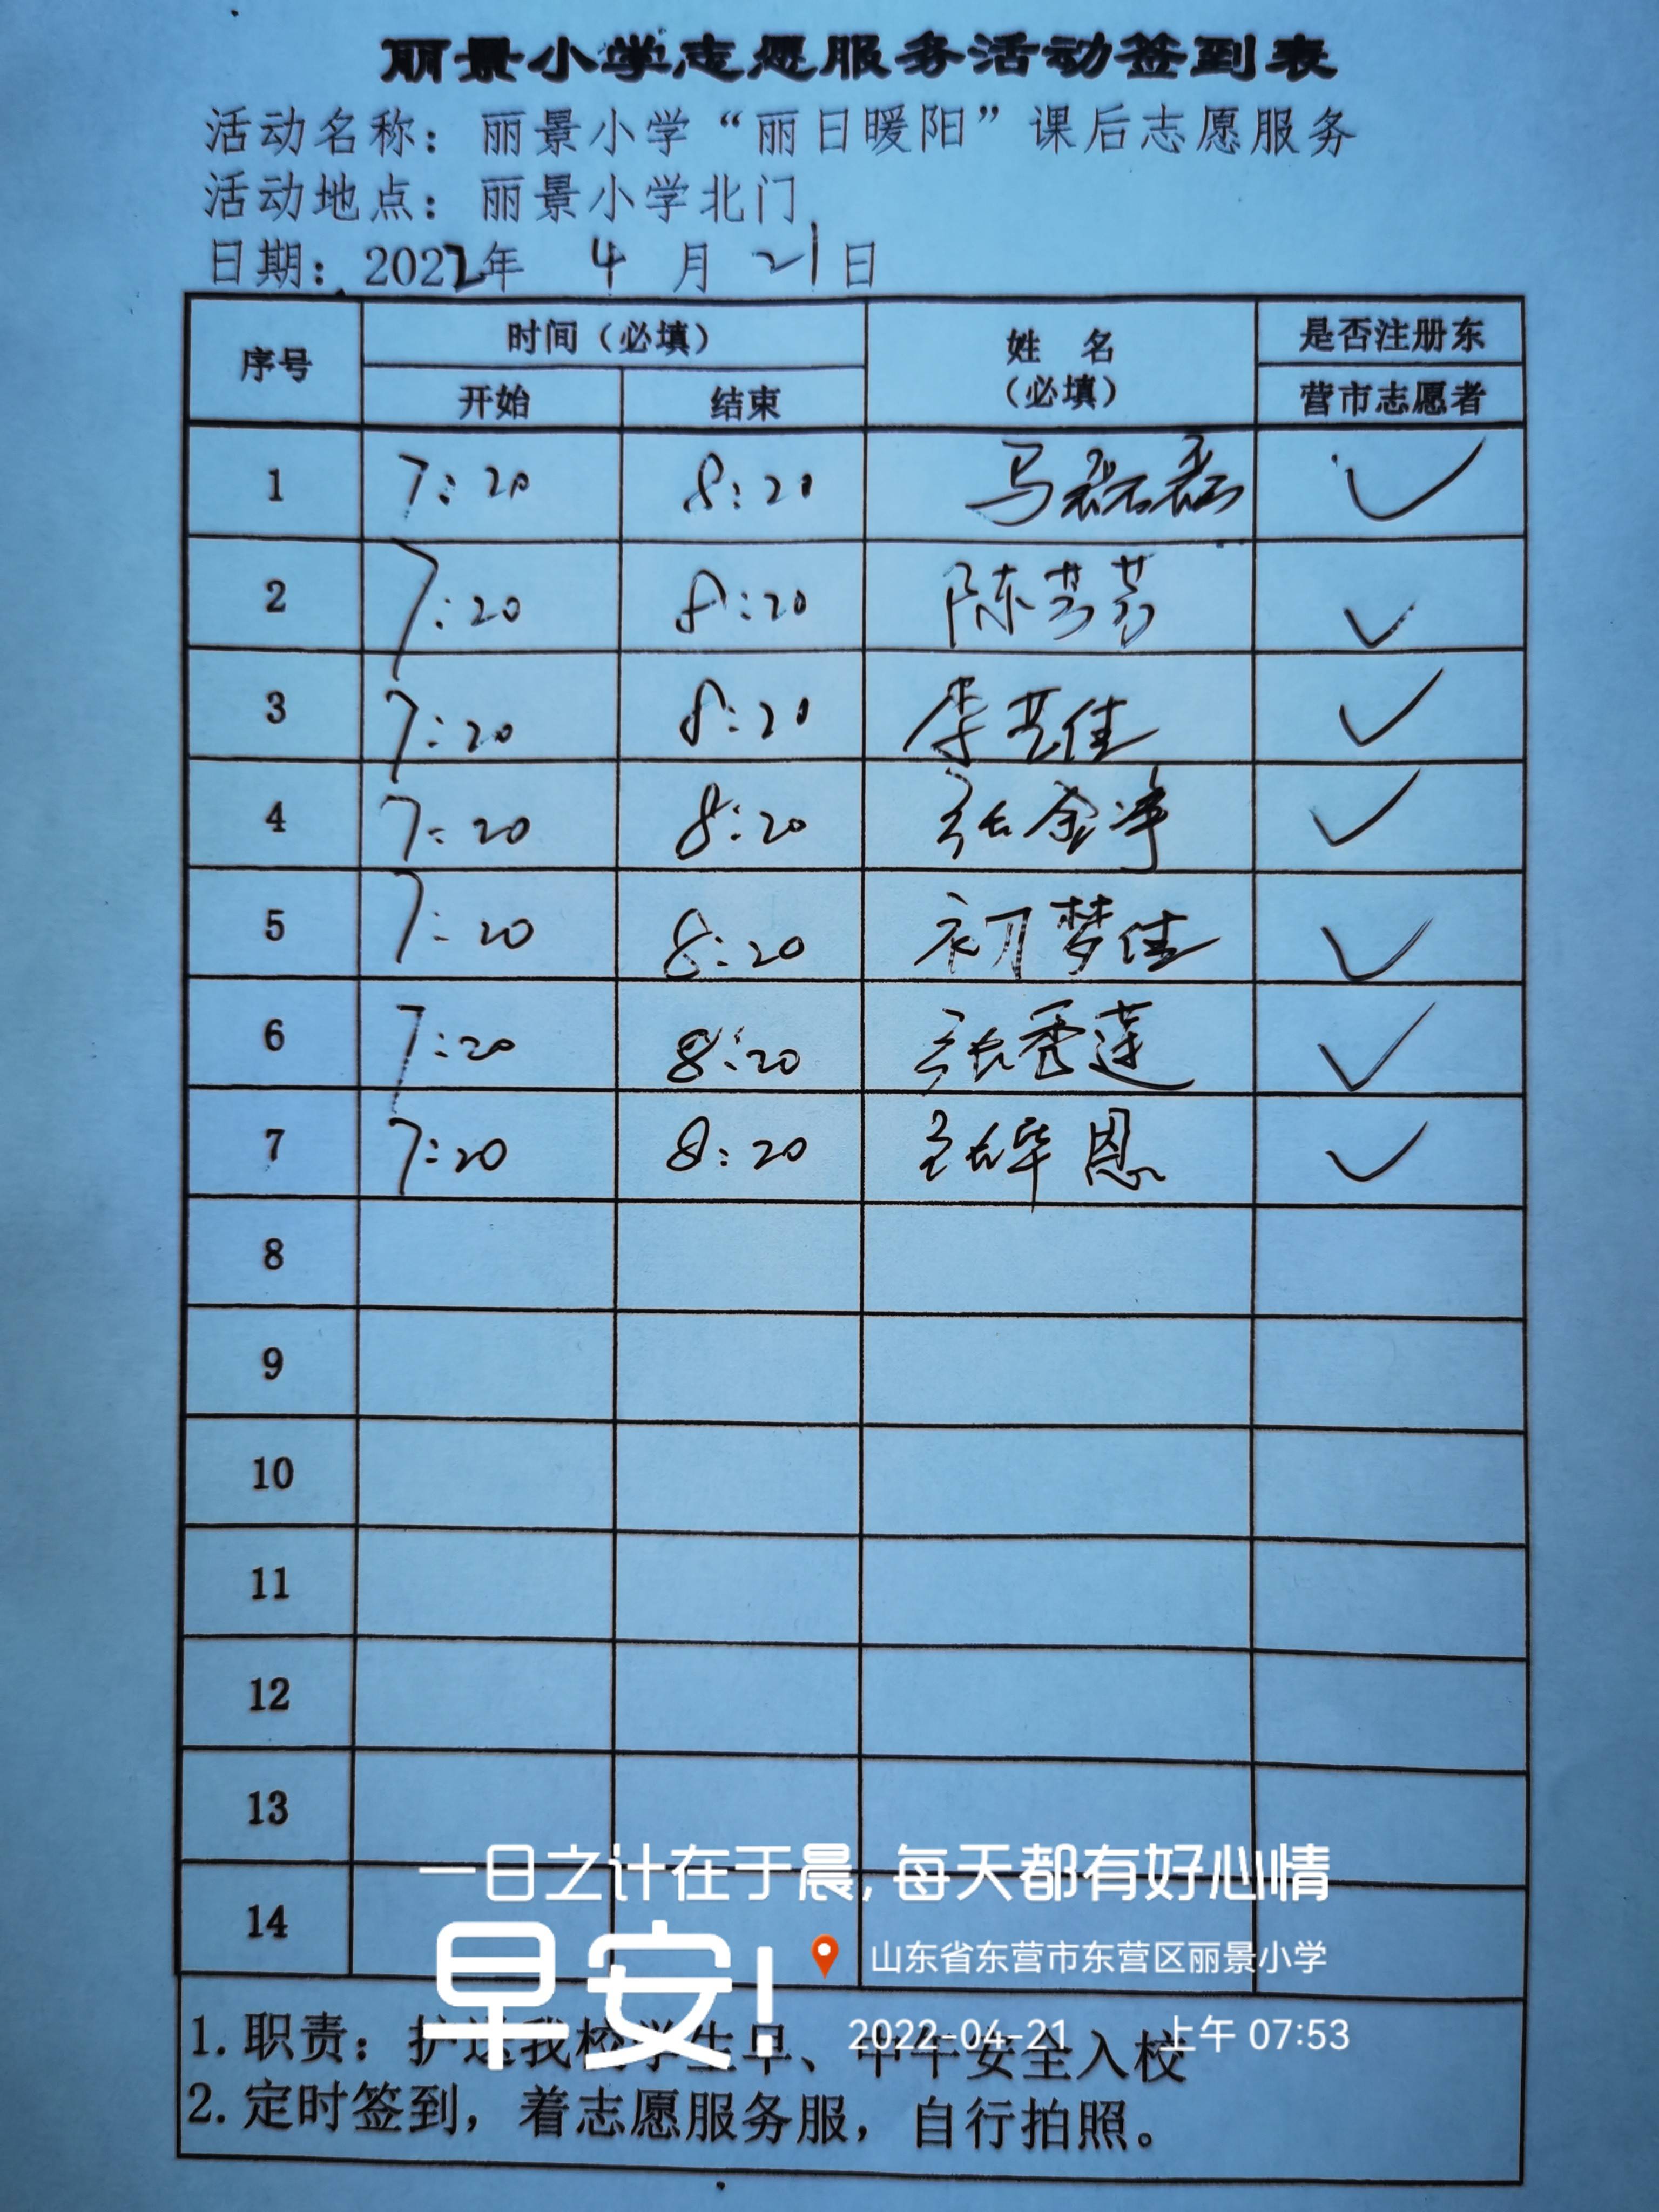 丽景小学志愿服务活动签到表
活动名称：丽景小学“丽日暖阳”课后志愿服务
活动地点：丽景小学北门
日期：2022年 4 月 21日
序号 时间（必填） 姓 名（必填） 是否注册东营市志愿者
开始 结束
1 7:20 8:20 马磊磊 ✓
2 7:20 8:20 陈芳芳 ✓
3 7:20 8:20 李艺佳 ✓
4 7:20 8:20 张金净 ✓
5 7:20 8:20 初梦佳 ✓
6 7:20 8:20 张秀莲 ✓
7 7:20 8:20 恩 ✓
8
9
10
11
12
13
14
一日之计在于晨，每天都有好心情
早安！
山东省东营市东营区丽景小学
2022-04-21 上午 07:53
1.职责：护送我校学生早、中午安全入校
2.定时签到，着志愿服务服，自行拍照。